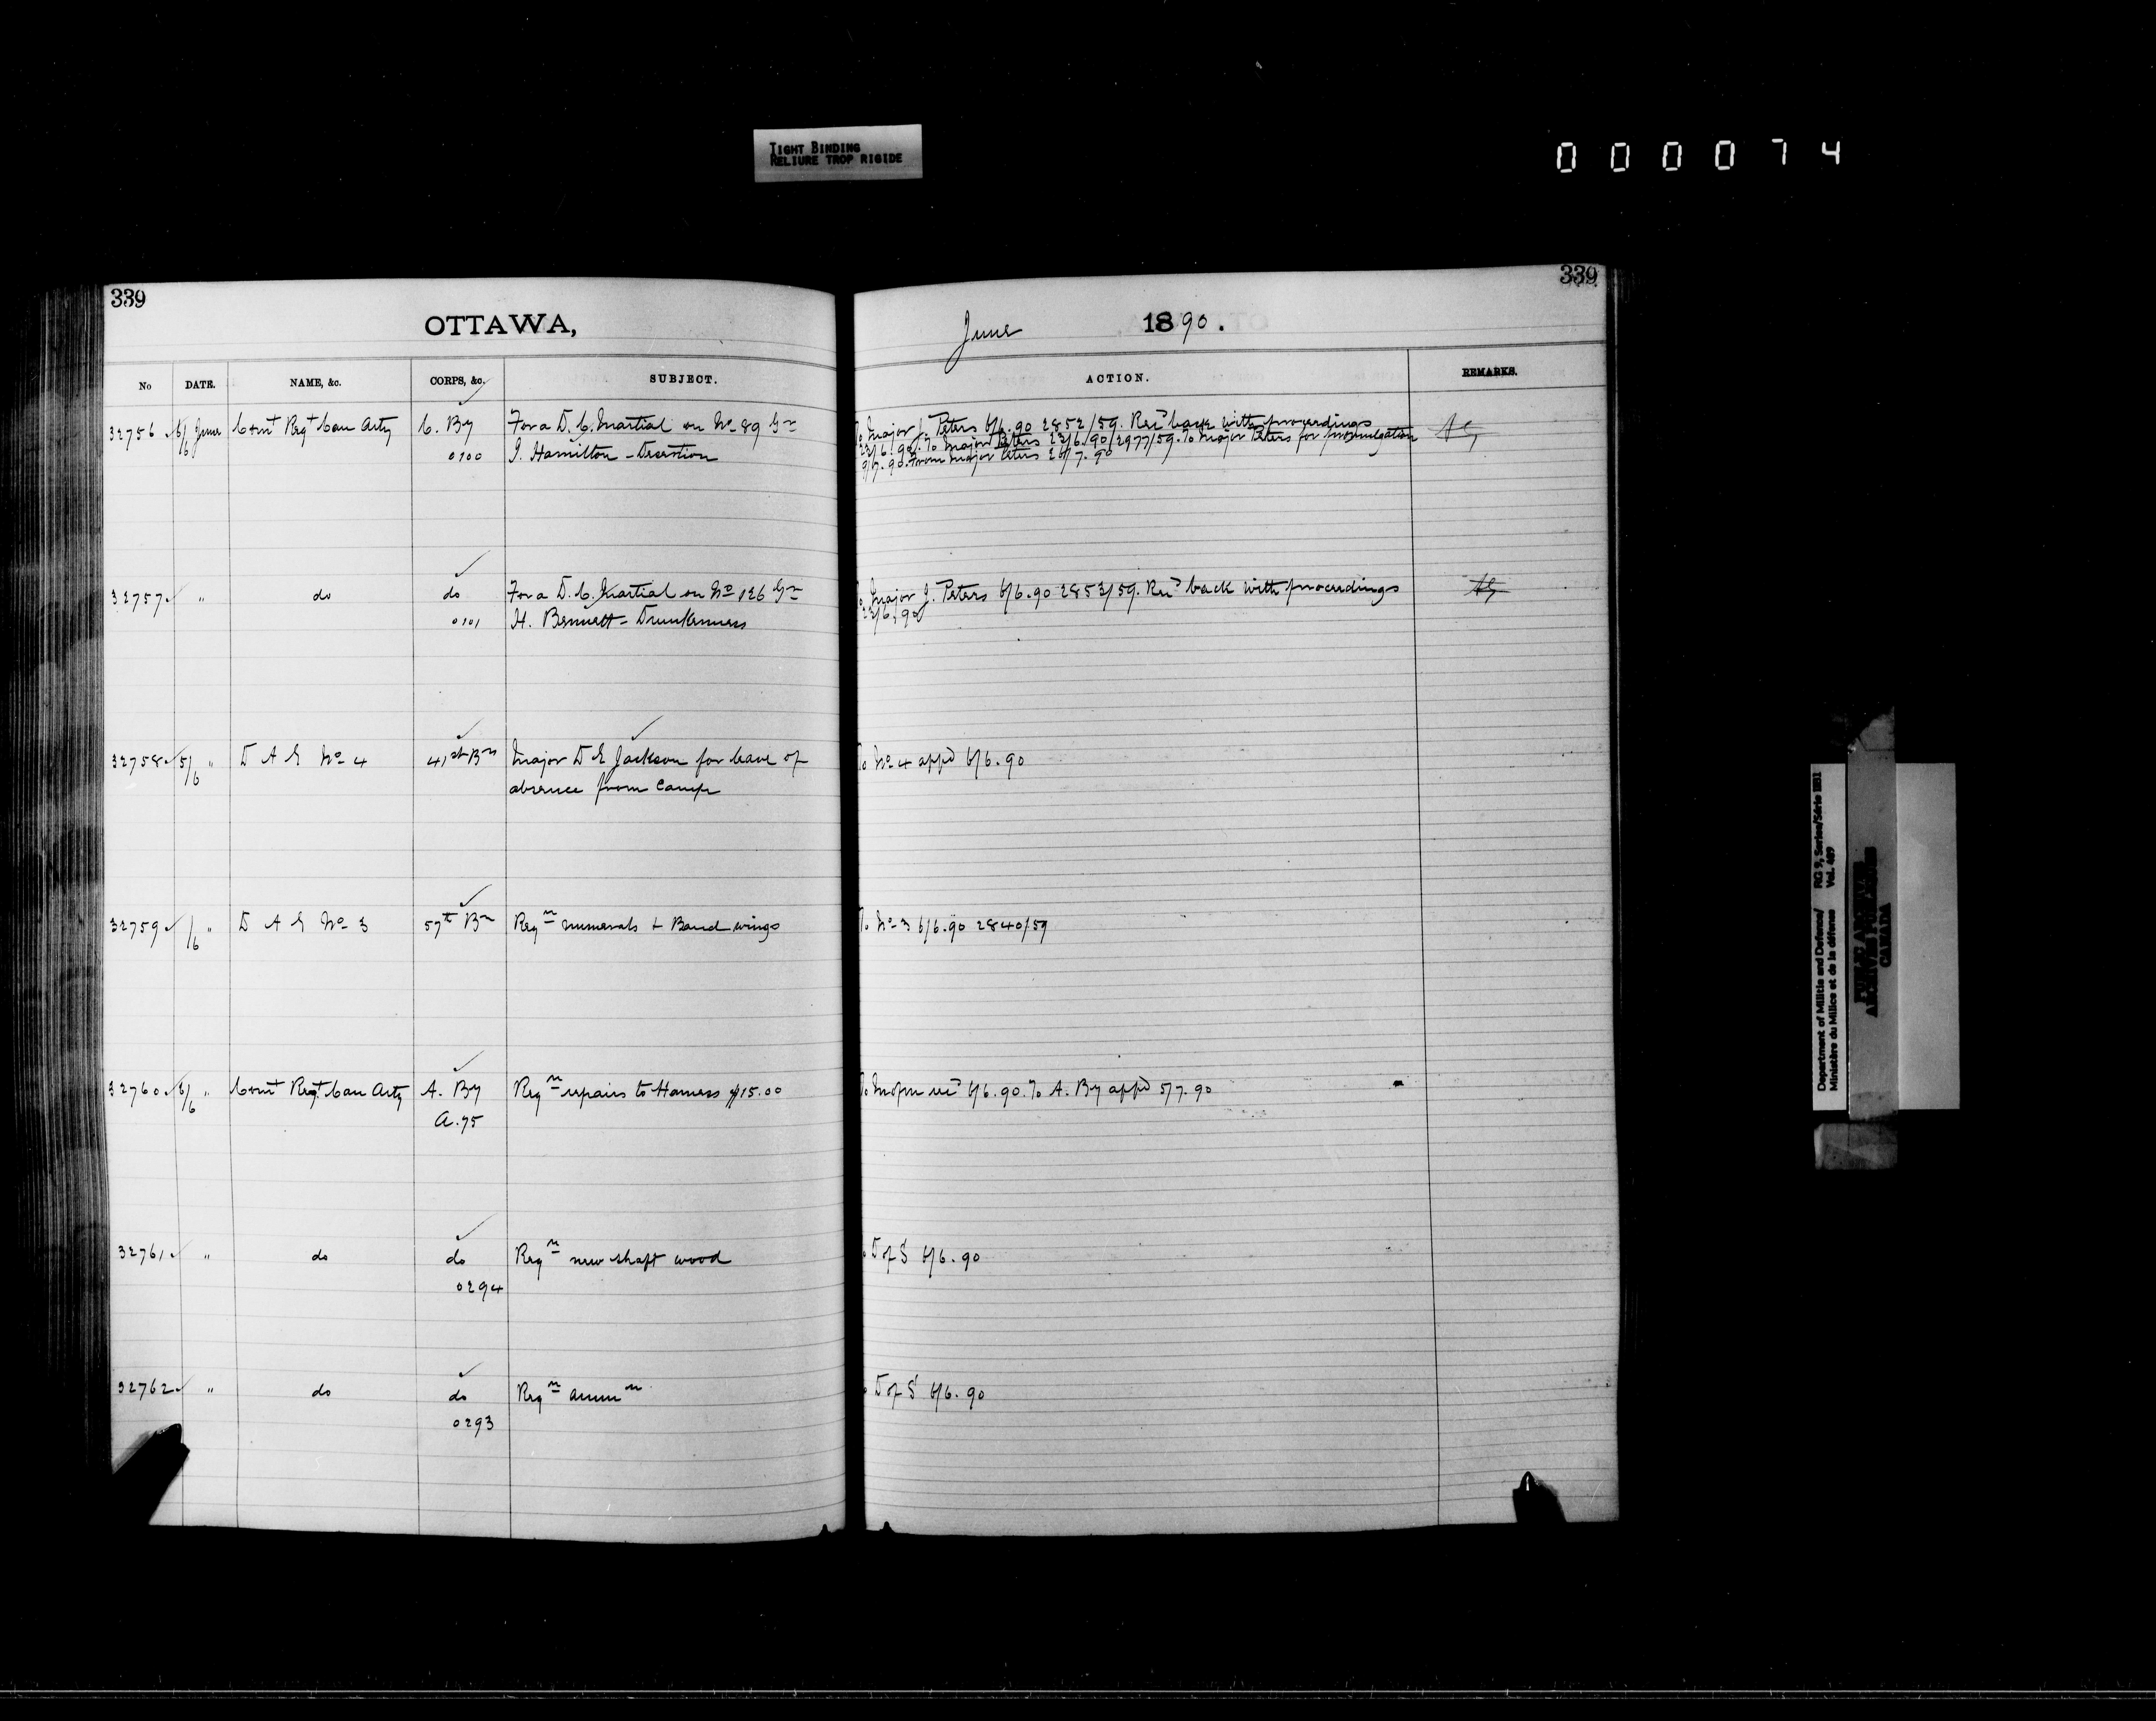 TIGHT BINDING
RELIURE TROP RIGIDE
000074
339
339
OTTAWA,
June 1890.
No DATE. NAME, &c. CORPS, &c. SUBJECT. ACTION. REMARKS.
32756 6/6 June Comt Regt Can Arty C. By For a D. C. Martial on No 89 Gr To Major J. Peters 6/6.90 2852/59. Recd back with proceedings
0100 J. Hamilton - Desertion 23/6/90. To Major Peters 23/6/90/2977/59. To Major Peters for promulgation
9/7.90. From Major Peters 26/7.90
32757 " do do For a D. C. Martial on No 126 Gr To Major J. Peters 6/6.90 2853/59. Recd back with proceedings
0101 H. Bennett - Drunkenness 23/6/90
32758 5/6 " D A G No 4 41st Bn Major D E Jackson for leave of To No 4 appd 6/6.90
absence from Camp
32759 /6 " D A G No 3 57th Bn Reqn numerals & Band wings To No 3 6/6.90 2840/59
32760 6/6 " Comt Regt Can Arty A. By Reqn repairs to Harness $15.00 To recd 6/6.90. To A. By appd 5/7.90
A.75
32761 " do do Reqn new shaft wood To D of S 6/6.90
0294
32762 " do do Reqn ammn To D of S 6/6.90
0293
Department of Militia and Defence/ RG 9, Series/Série IIB1
Ministère du Milice et de la défense Vol. 469
PUBLIC ARCHIVES
ARCHIVES PUBLIQUES
CANADA